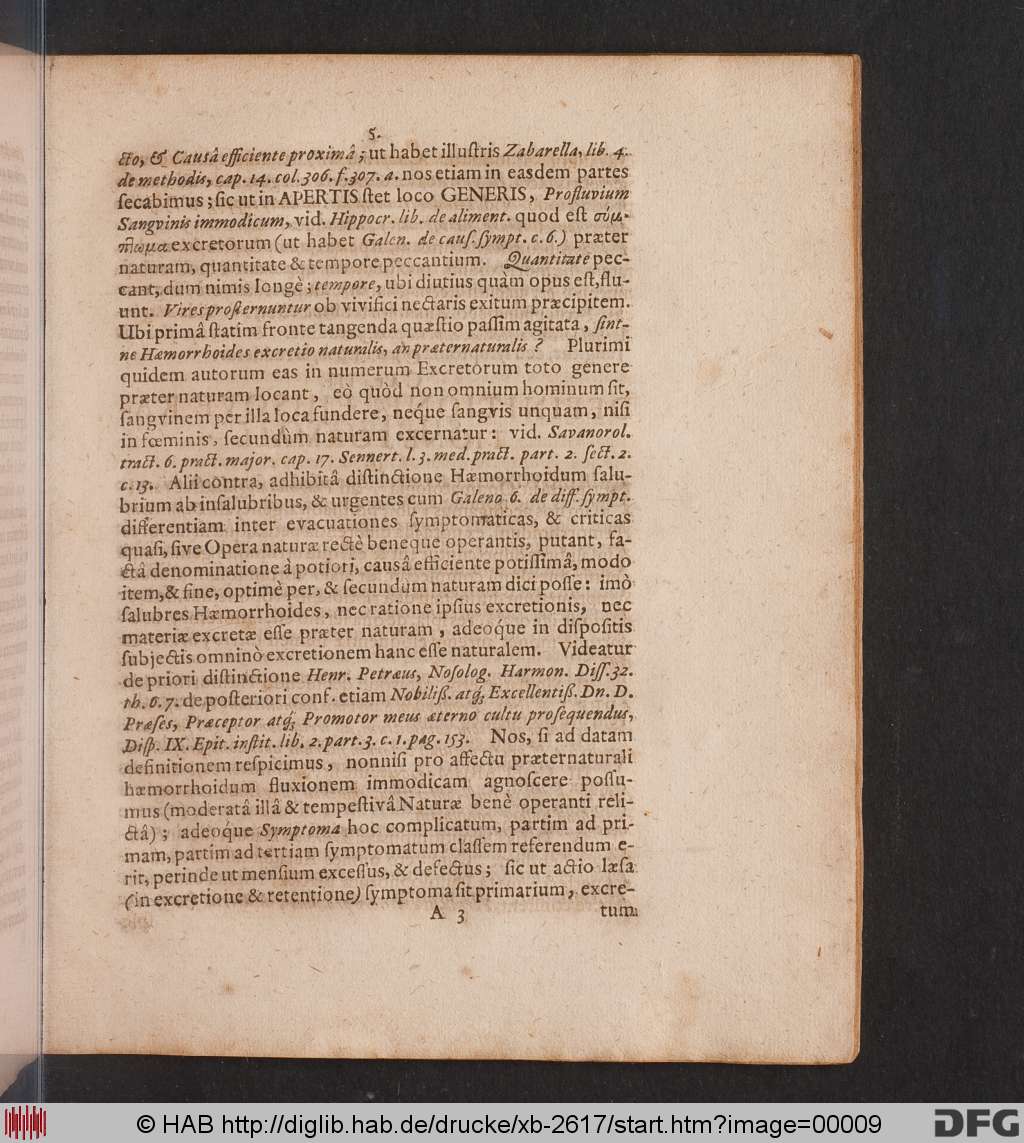 5.
cto, & Causâ efficiente proximâ; ut habet illuſtris Zabarella, lib. 4.
de methodis, cap. 14. col. 306. f. 307. a. nos etiam in easdem partes
ſecabimus; ſic ut in APERTIS ſtet loco GENERIS, Profluvium
Sangvinis immodicum, vid. Hippocr. lib. de aliment. quod eſt σύμ-
πlωμα excretorum (ut habet Galen. de cauſ. ſympt. c. 6.) præter
naturam, quantitate & tempore peccantium. Quantitate pec-
cant, dum nimis longè; tempore, ubi diutius quàm opus eſt, flu-
unt. Vires proſternuntur ob vivifici nectaris exitum præcipitem.
Ubi primâ ſtatim fronte tangenda quæſtio paſſim agitata, ſint-
ne Hæmorrhoides excretio naturalis, an præternaturalis? Plurimi
quidem autorum eas in numerum Excretorum toto genere
præter naturam locant, eò quòd non omnium hominum ſit,
ſangvinem per illa loca fundere, neque ſangvis unquam, niſi
in fœminis, ſecundùm naturam excernatur: vid. Savanorol.
tract. 6. pract. major. cap. 17. Sennert. l. 3. med. pract. part. 2. ſect. 2.
c. 13. Alii contra, adhibitâ diſtinctione Hæmorrhoidum ſalu-
brium ab inſalubribus, & urgentes cum Galeno 6. de diff. ſympt.
differentiam inter evacuationes ſymptomaticas, & criticas
quaſi, ſive Opera naturæ rectè beneque operantis, putant, fa-
ctâ denominatione à potiori, causâ efficiente potiſſimâ, modo
item, & fine, optimè per, & ſecundùm naturam dici poſſe: imò
ſalubres Hæmorrhoides, nec ratione ipſius excretionis, nec
materiæ excretæ eſſe præter naturam, adeoq́ue in diſpoſitis
ſubjectis omninò excretionem hanc eſſe naturalem. Videatur
de priori diſtinctione Henr. Petræus, Noſolog. Harmon. Diſſ. 32.
th. 6. 7. de poſteriori conf. etiam Nobiliß. atq́; Excellentiß. Dn. D.
Præſes, Præceptor atq́; Promotor meus æterno cultu proſequendus,
Diſp. IX. Epit. inſtit. lib. 2. part. 3. c. 1. pag. 153. Nos, ſi ad datam
definitionem reſpicimus, nonniſi pro affectu præternaturali
hæmorrhoidum fluxionem immodicam agnoſcere poſſu-
mus (moderatâ illâ & tempeſtivâ Naturæ benè operanti reli-
ctâ); adeoq́ue Symptoma hoc complicatum, partim ad pri-
mam, partim ad tertiam ſymptomatum claſſem referendum e-
rit, perinde ut menſium exceſſus, & defectus; ſic ut actio læſa
(in excretione & retentione) ſymptoma ſit primarium, excre-
A 3 tum
© HAB http://diglib.hab.de/drucke/xb-2617/start.htm?image=00009
DFG